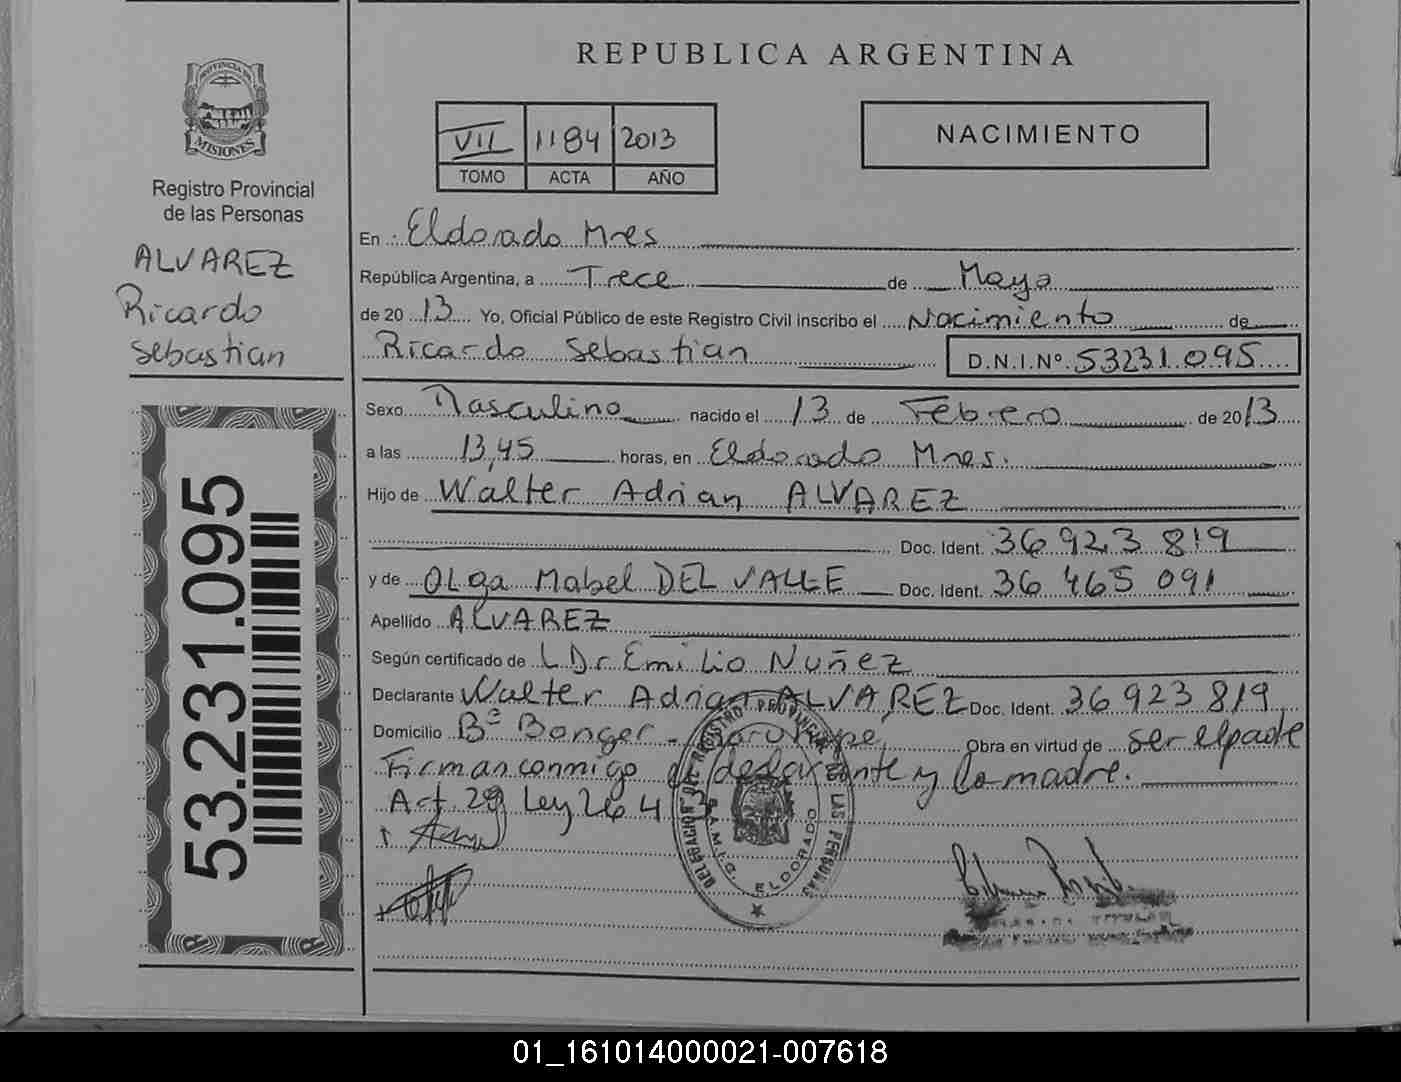 REPUBLICA ARGENTINA
PROVINCIA DE
MISIONES
Registro Provincial
de las Personas
ALVAREZ
Ricardo
Sebastian
53.231.095
VII 1184 2013
TOMO ACTA AÑO
NACIMIENTO
En Eldorado Mnes
República Argentina, a Trece de Mayo
de 20 13 Yo, Oficial Público de este Registro Civil inscribo el Nacimiento de
Ricardo Sebastian D.N.I.Nº 53231.095
Sexo Masculino nacido el 13 de Febrero de 2013
a las 13,45 horas, en Eldorado Mnes.
Hijo de Walter Adrian ALVAREZ
Doc. Ident. 36 923 819
y de OLga Mabel DEL VALLE Doc. Ident. 36 465 091
Apellido ALVAREZ
Según certificado de Dr Emilio Nuñez
Declarante Walter Adrian ALVAREZ Doc. Ident. 36 923 819
Domicilio Bº Bonger - Obra en virtud de ser el padre
Firman conmigo el declarante y la madre.
Art 29 Ley 26 413
DELEGACION DEL REGISTRO PROVINCIAL DE LAS PERSONAS
ELDORADO
01_161014000021-007618